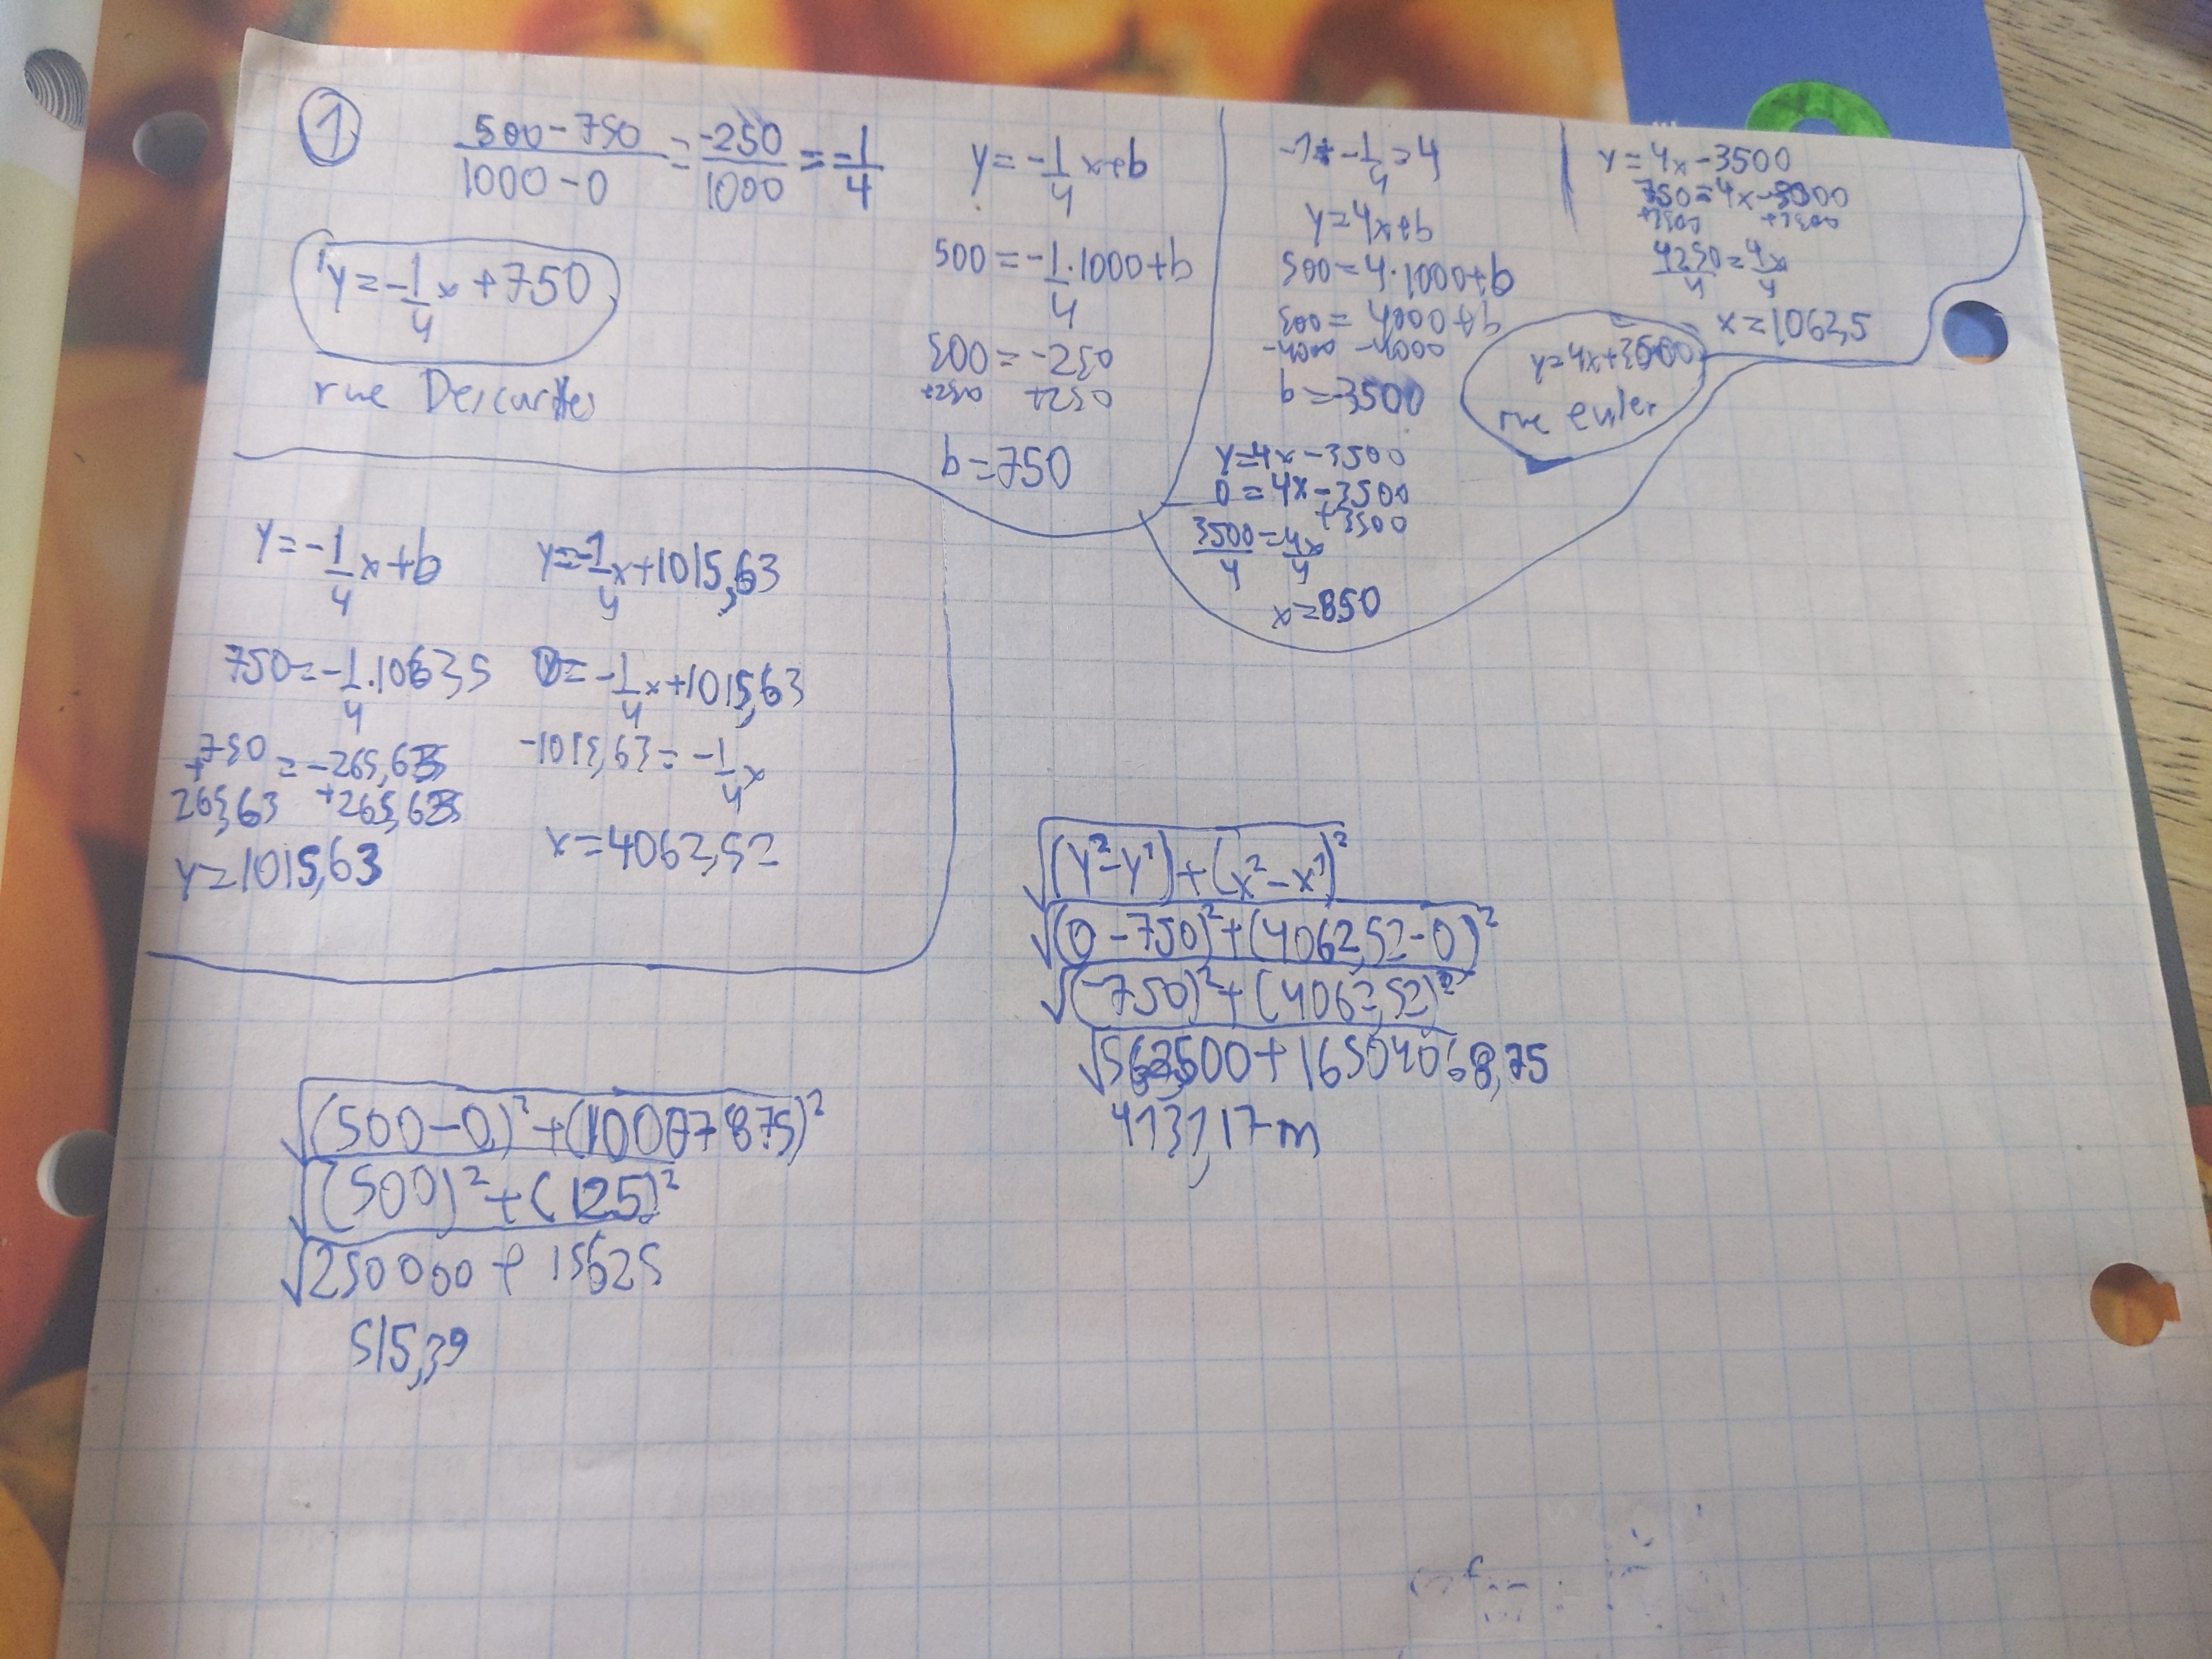 1
500-750 / 1000-0 = -250 / 1000 = -1/4
y=-1/4x+750
rue Descartes
y=-1/4x+b
500=-1/4·1000+b
500=-250
+250 +250
b=750
-1÷-1/4=4
y=4x+b
500=4·1000+b
500=4000+b
-4000 -4000
b=-3500
y=4x+3500
rue euler
y=4x-3500
0=4x-3500
+3500
3500/4=4x/4
x=850
y=4x-3500
750=4x-3500
+3500 +3500
4250/4=4x/4
x=1062,5
y=-1/4x+b
750=-1/4·1063,5
+750=-265,635
265,63 +265,635
y=1015,63
y=-1/4x+1015,63
0=-1/4x+1015,63
-1015,63=-1/4x
x=4062,52
√(y²-y¹)+(x²-x¹)²
√(0-750)²+(4062,52-0)²
√(-750)²+(4062,52)²
√562500+16504068,75
4131,17m
√(500-0)²+(1000-875)²
√(500)²+(125)²
√250000+15625
515,39